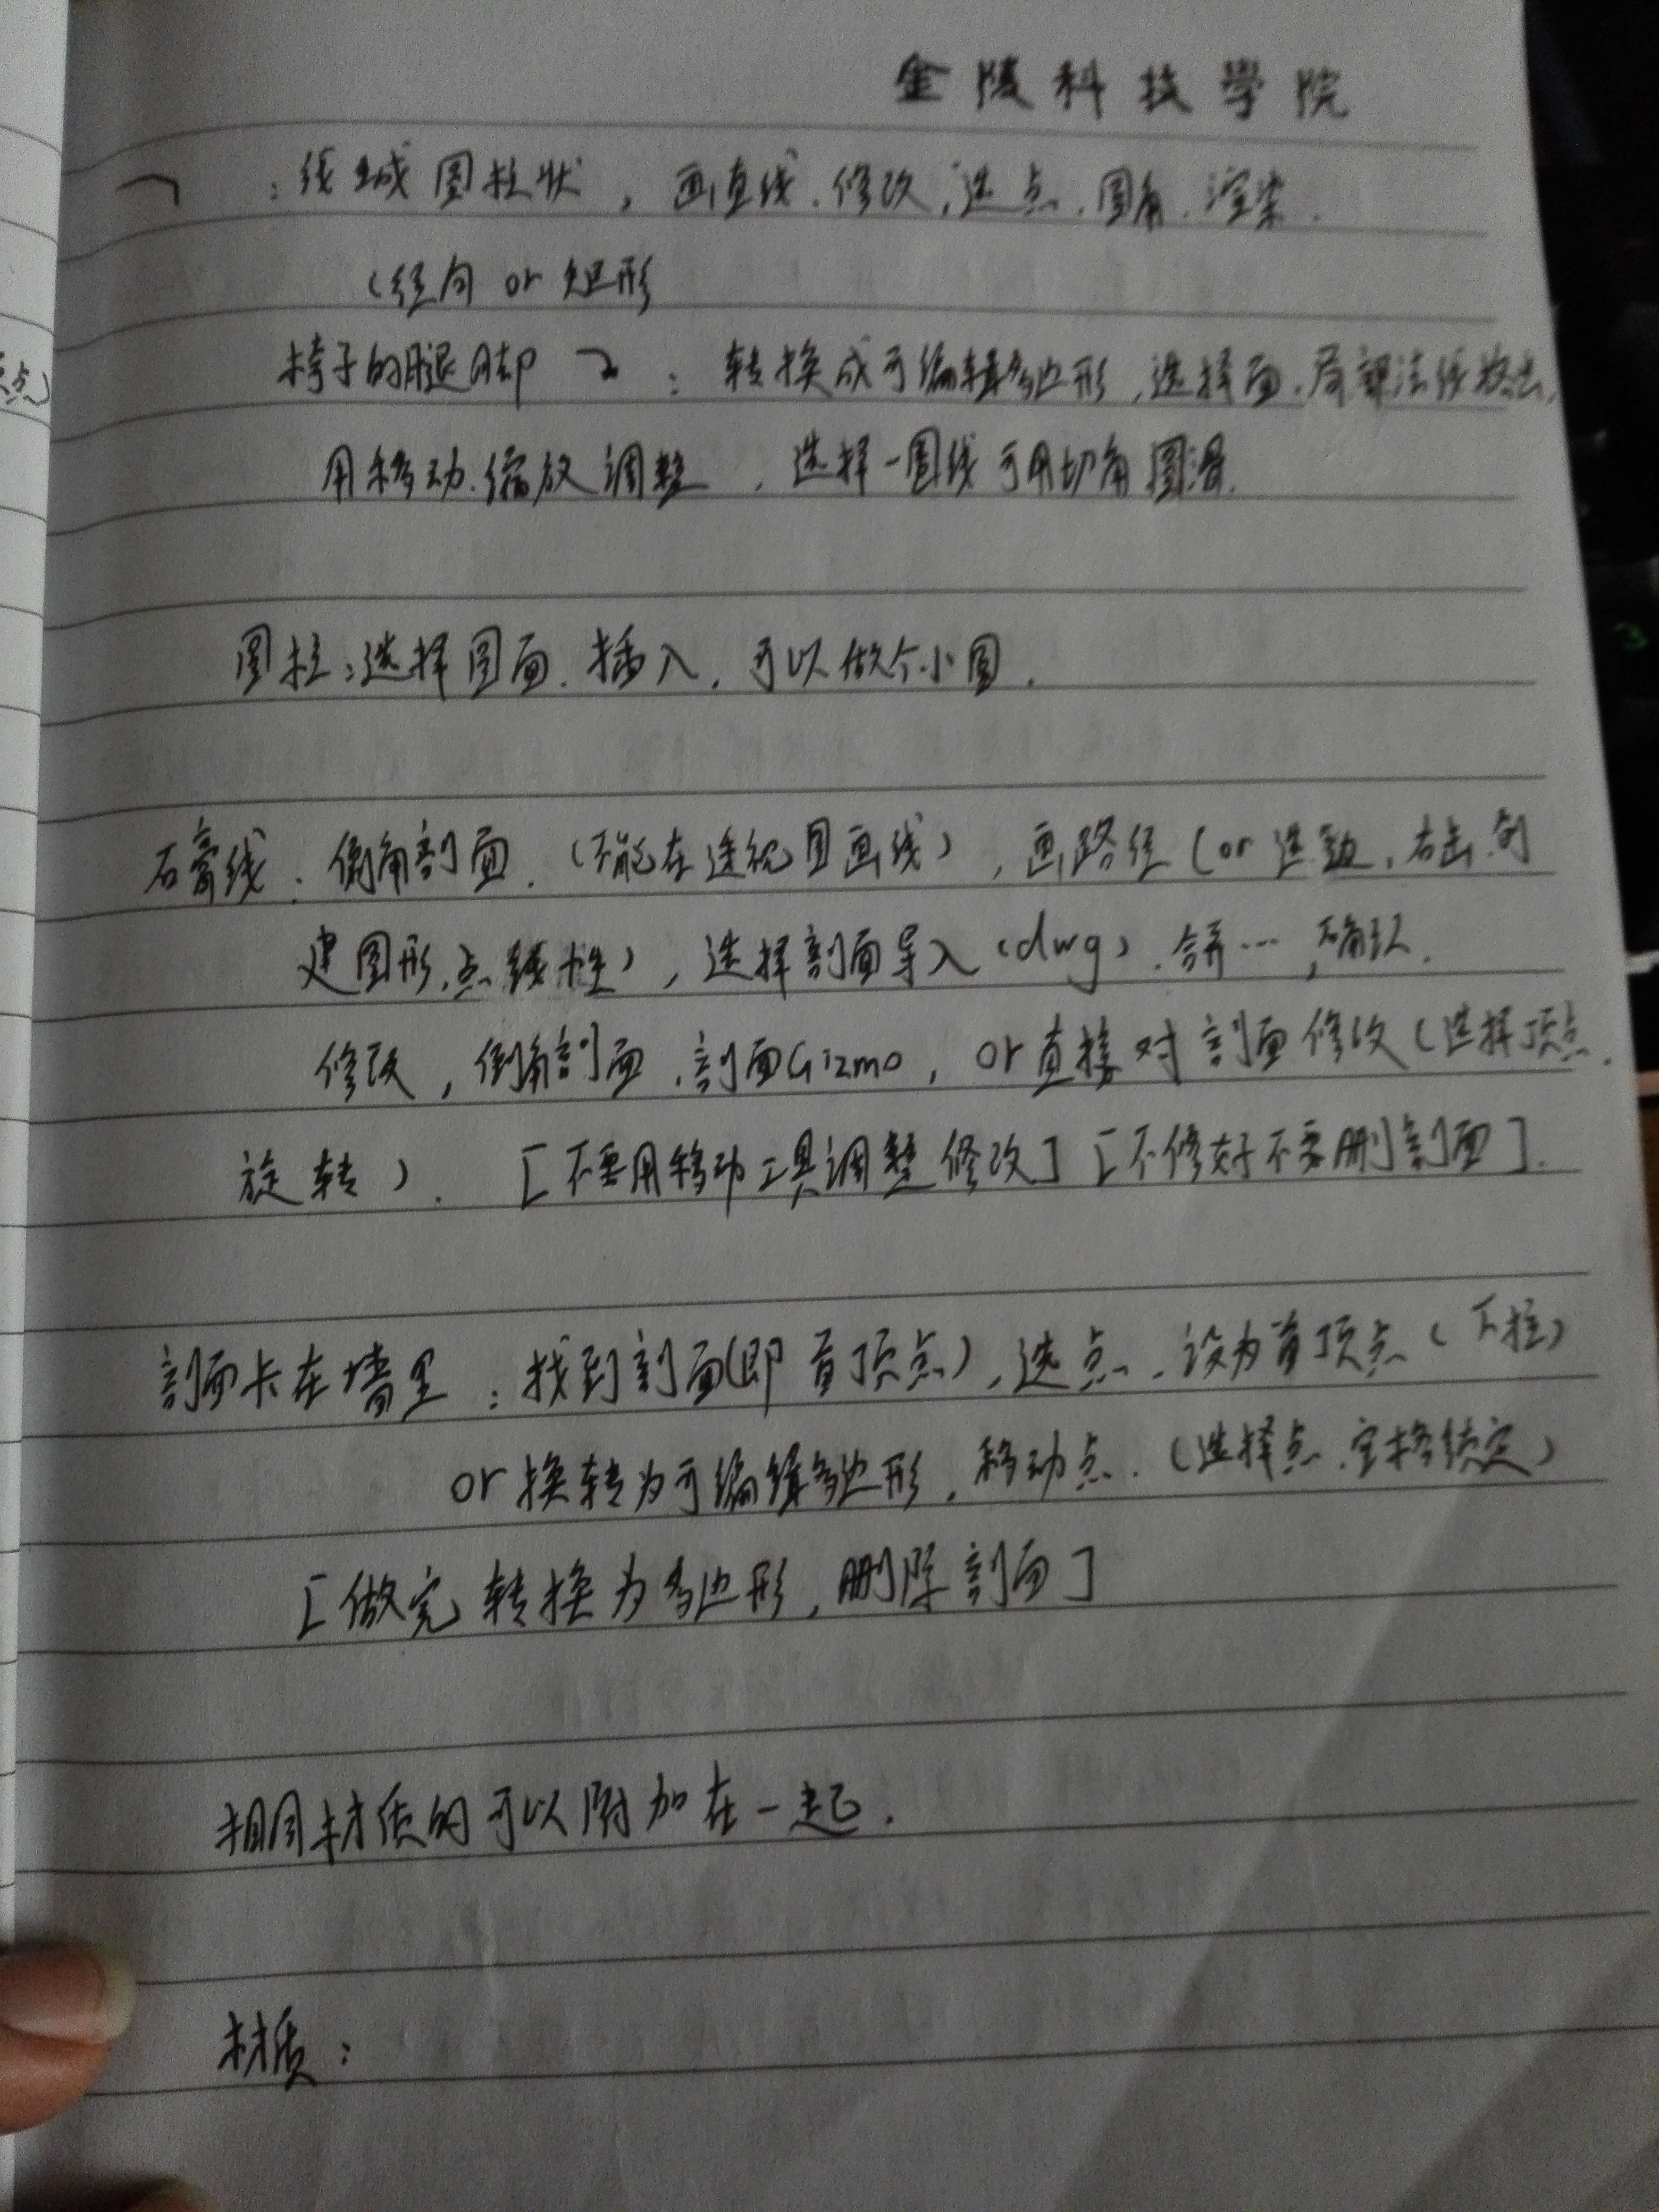 金陵科技學院
：线城圆柱状，画直线.修改，选点.圆角.渲染.
（径向 or 矩形
椅子的腿脚 ：转换成可编辑多边形，选择面.局部法线挤出，
点）
用移动.缩放调整，选择一圈线可用切角圆滑.
圆柱：选择圆面.插入.可以做个小圆.
石膏线：倒角剖面.（不能在透视图画线），画路径（or 选边，右击.创
建图形.点线性），选择剖面导入（dwg）.合并…，确认.
修改，倒角剖面.剖面Gizmo，or直接对剖面修改（选择顶点.
旋转）. [不要用移动工具调整修改] [不修好不要删剖面].
剖面卡在墙里：找到剖面(即首顶点)，选点.设为首顶点（下拉）
or 换转为可编辑多边形.移动点.（选择点.空格锁定）
[做完转换为多边形，删除剖面]
相同材质的可以附加在一起.
材质：